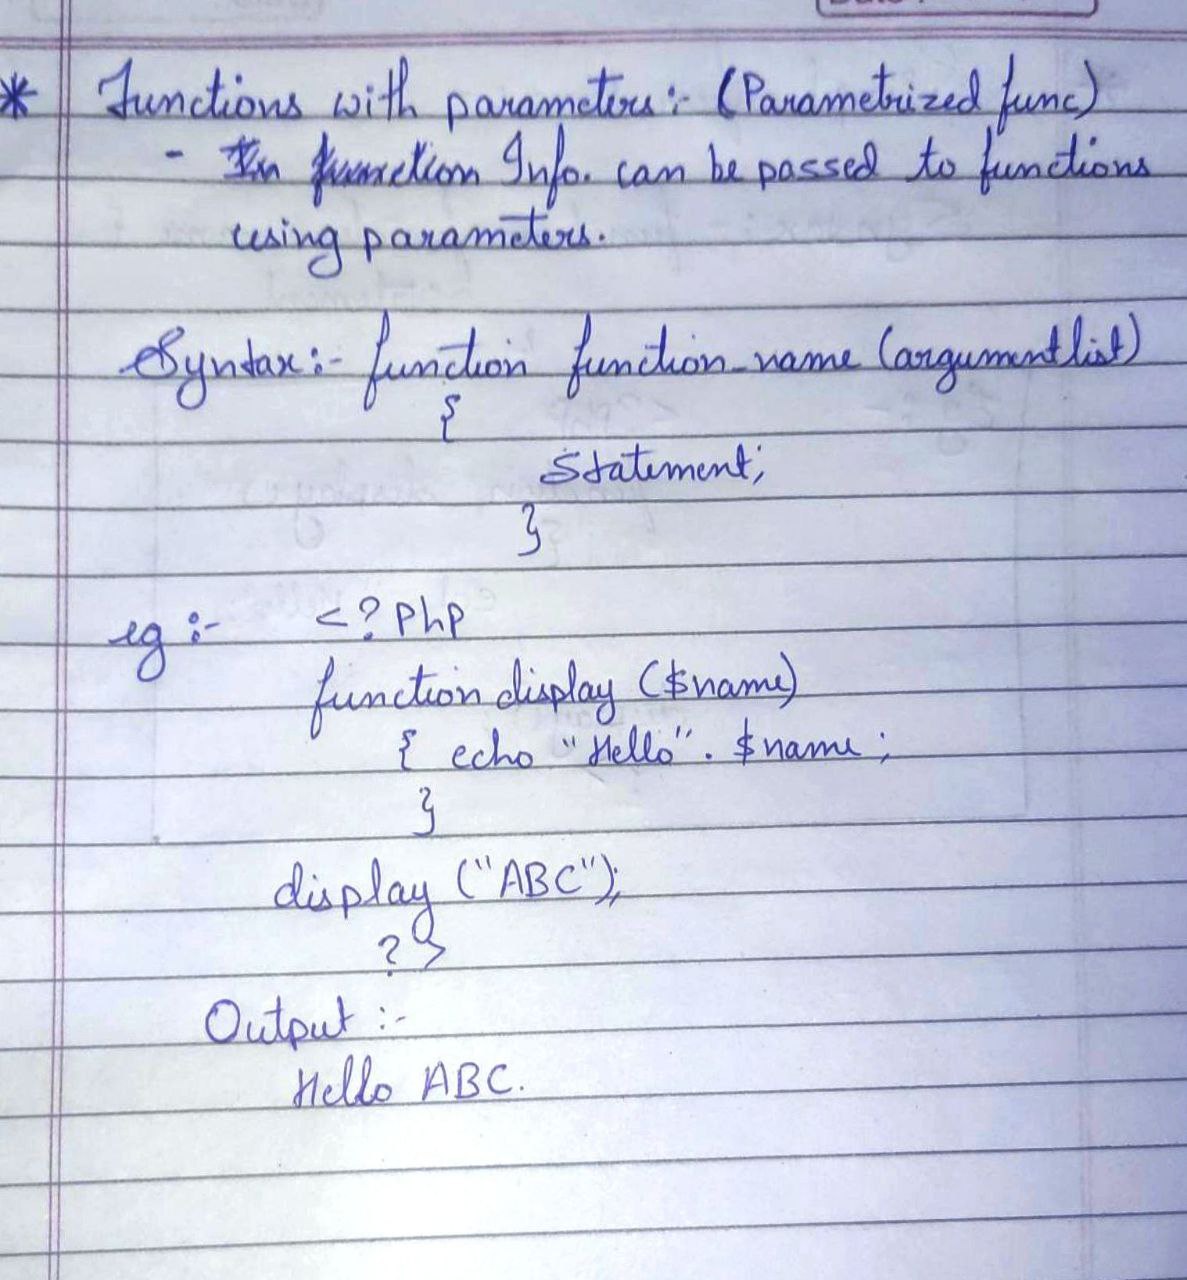 * Functions with parameters :- (Parametrized func)
- In function Info. can be passed to functions
using parameters.
Syntax :- function function_name (argumentlist)
{
Statement;
}
eg :- <? PhP
function display ($name)
{ echo "Hello" . $name ;
}
display ("ABC");
?>
Output :-
Hello ABC.